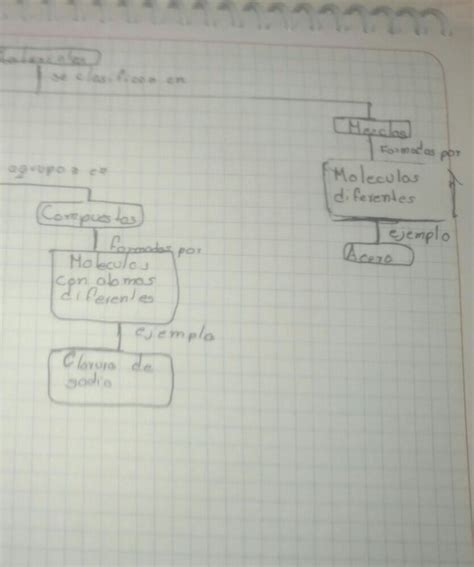 se clasifican en
Mezclas
Formadas por
Moleculas
diferentes
ejemplo
Acero
agrupa a
Compuestos
formados por
Moleculas
con atomos
diferentes
ejemplo
Cloruro de
sodio